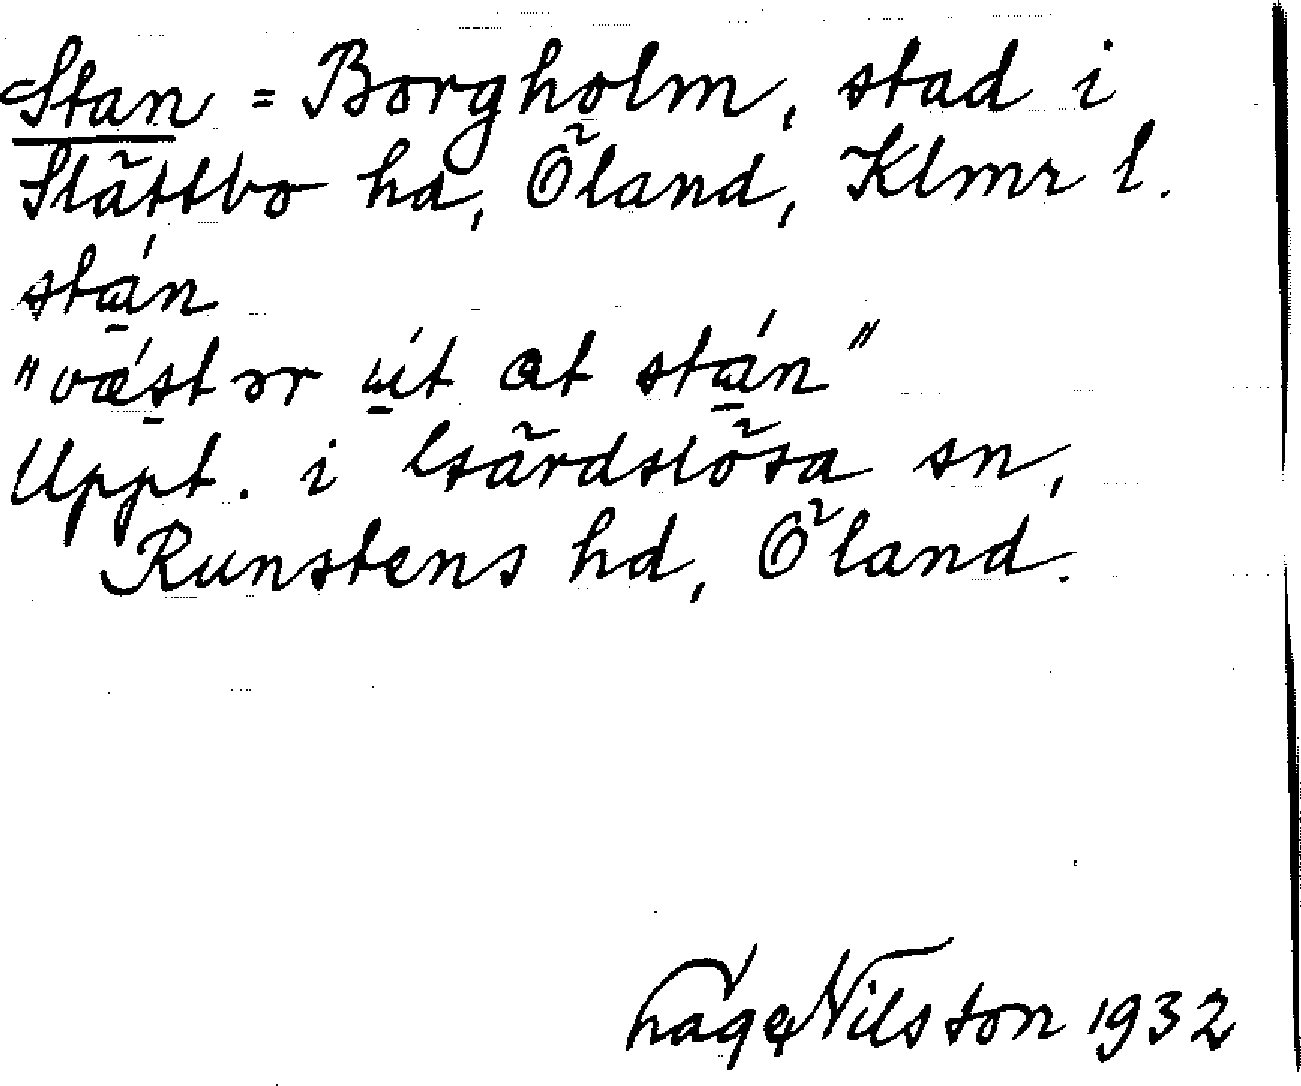 Stan = Borgholm, stad i
Slättbo hd, Öland, Klmr l.
stá̱n
"vǽs̱tər ú̱t at stá̱n"
Uppt. i Gärdslösa sn,
Runstens hd, Öland.
Nilsson 1932